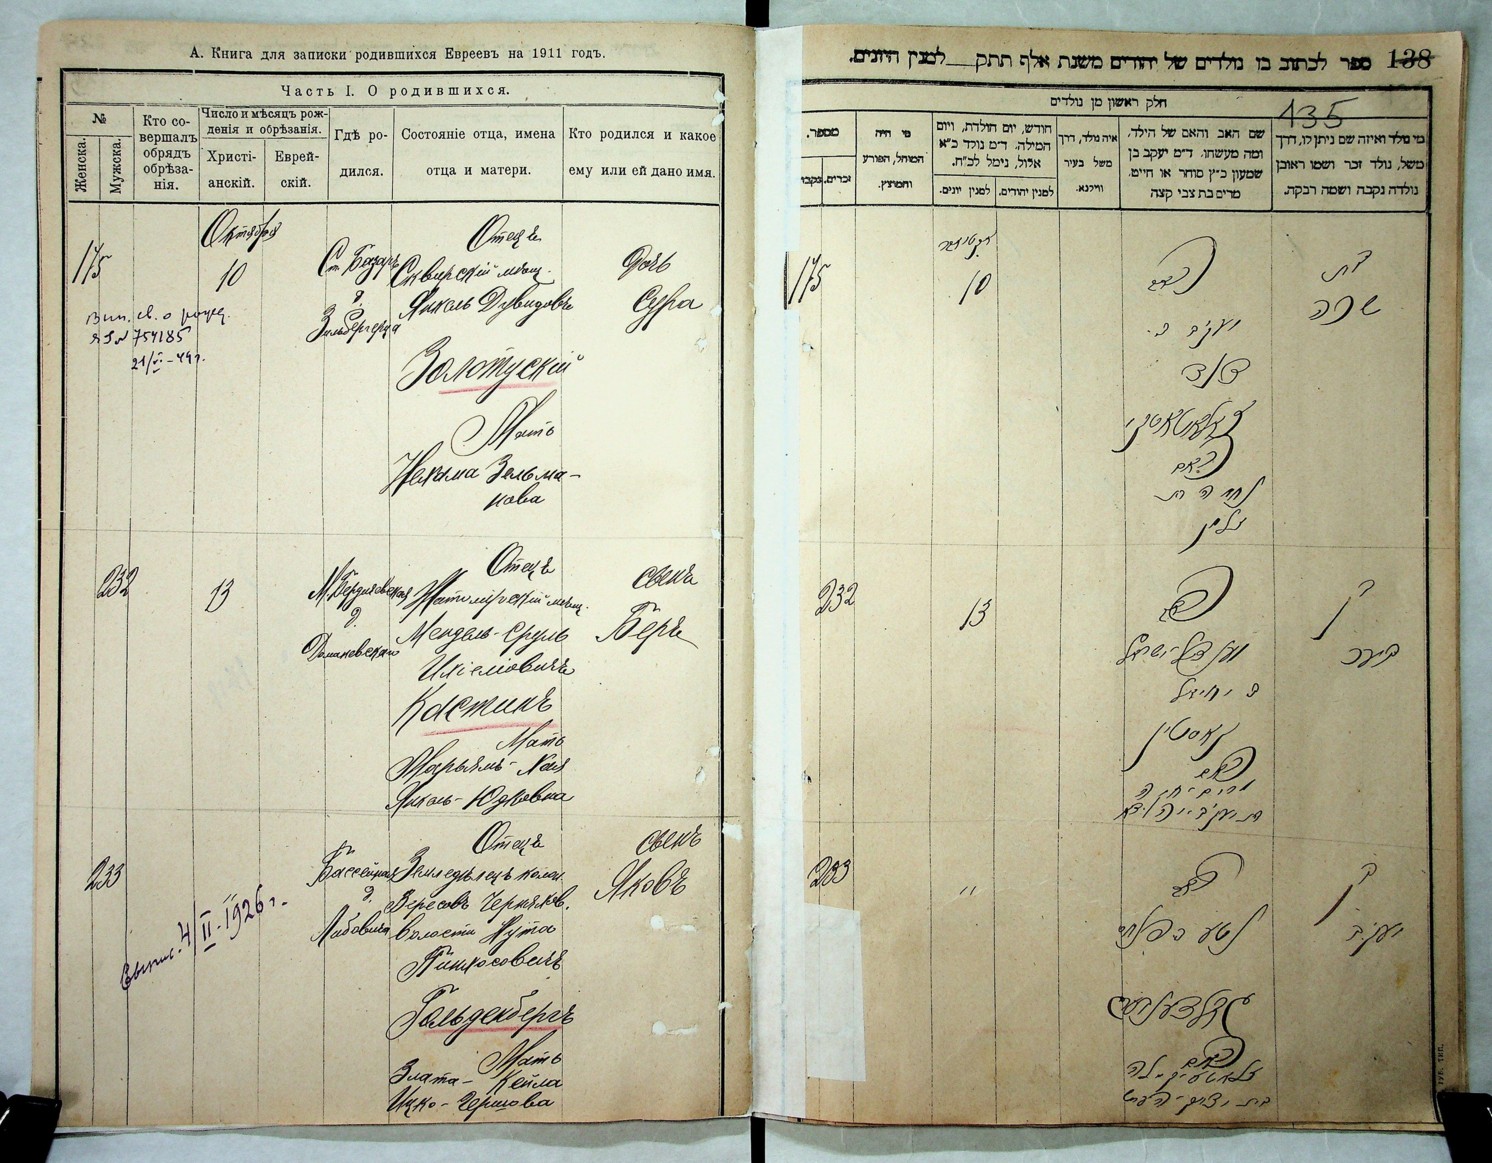 А. Книга для записки родившихся Евреевъ на 1911 годъ.
Часть I. О родившихся.
№
Женска.
Мужска.
Кто со-
вершалъ
обрядъ
обрѣза-
нія.
Число и мѣсяцъ рож-
денія и обрѣзанія.
Христі-
анскій.
Еврей-
скій.
Гдѣ ро-
дился.
Состояніе отца, имена
отца и матери.
Кто родился и какое
ему или ей дано имя.
Октября
175
10
Ст. Базаръ
д.
Зильберберга
Отецъ
Сквирскій мѣщ.
Янкель Дувидовъ
Золотускій
Мать
Нехама Зельма-
нова
Дочь
Сура
Вып. св. о рожд.
754185
232
13
М. Бердичевская
д.
Домановскаго
Отецъ
Житомірскій мѣщ.
Мендель-Сруль
Ихіеліовичъ
Костинъ
Мать
Марьямъ-Хая
Янкель-Юдковна
сынъ
Беръ
233
4/II-1926 г.
Бассейная
д.
Отецъ
Земледѣлецъ колон.
Вересовъ Черняхов.
волости Нута
Пинхосовичъ
Гольденбергъ
Мать
Злата-Кейла
Ицко-Гершова
сынъ
Яковъ
138
ספר לכתוב בו נולדים של יהודים משנת אלף תתק למנין היונים.
135
חלק ראשון מן נולדים
מספר.
זכרים.
נקבות
מי היה
המוהל, הפורע
והמוצץ.
חודש, יום הולדת, ויום
המילה. ד״מ נולד כ״א
אלול, נימל לכ״ח.
למנין יונים.
למנין יהודים.
איה נולד, דרך
משל בעיר
ווילנא.
שם האב והאם של הילד,
ומה מעשהו. ד״מ יעקב בן
שמעון כ״ץ סוחר או חייט.
מרים בת צבי קצה
מי נולד ואיזה שם ניתן לו, דרך
משל, נולד זכר ושמו ראובן
נולדה נקבה ושמה רבקה.
175
10
האב
יעקב ב.
דוד
זאלאטאוסקי
האם
נחמה בת
זלמן
בת
שרה
232
13
האב
מענדל ישראל
ב יחיאל
קאסטין
האם
מרים חיה
בן
בער
233
"
האב
נטע ב פנחס
גאלדענבערג
האם
בן
יעקב